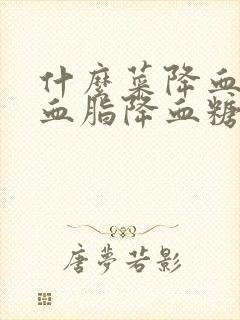 什麽菜降血
血脂降血糖
唐夢若影